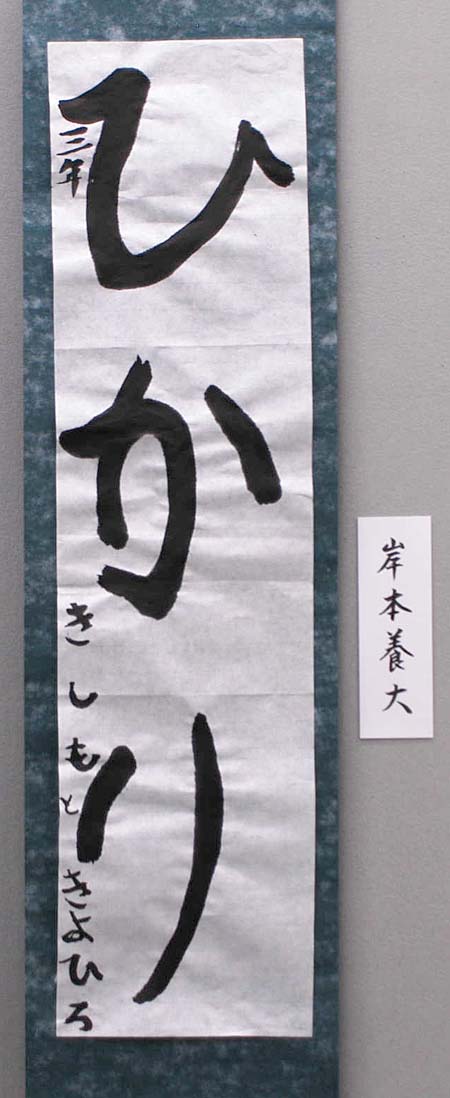 ひかり
三年
きしもときよひろ
岸本養大